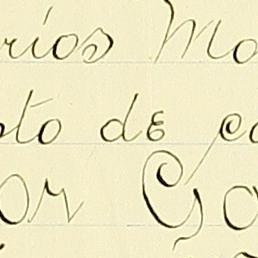 rios Mo
to de co
or Go